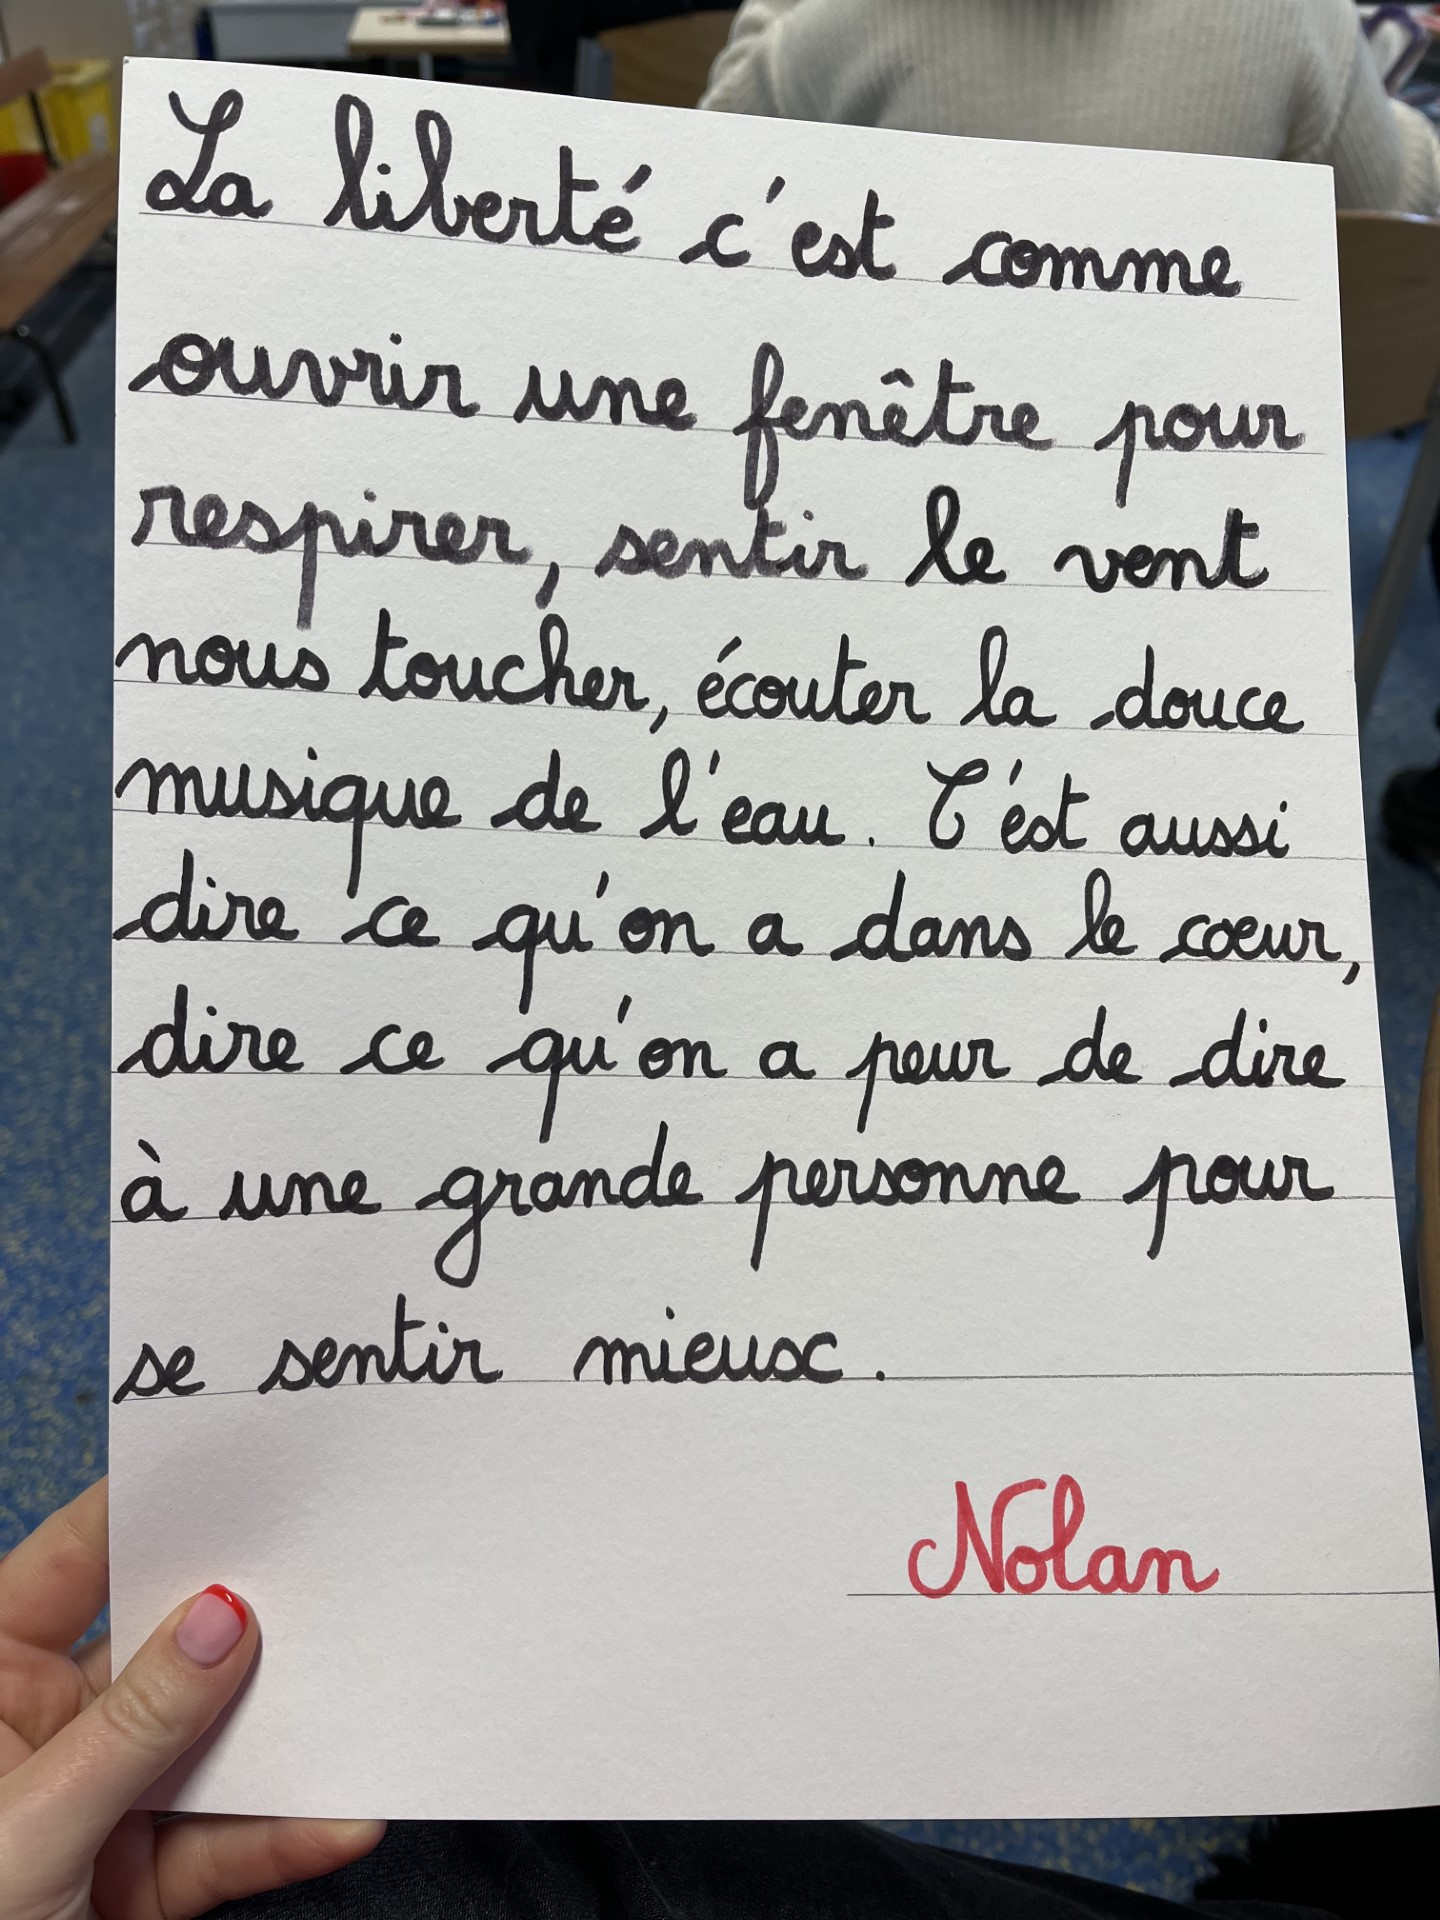 La liberté c'est comme
ouvrir une fenêtre pour
respirer, sentir le vent
nous toucher, écouter la douce
musique de l'eau. C'est aussi
dire ce qu'on a dans le cœur,
dire ce qu'on a peur de dire
à une grande personne pour
se sentir mieux.
Nolan